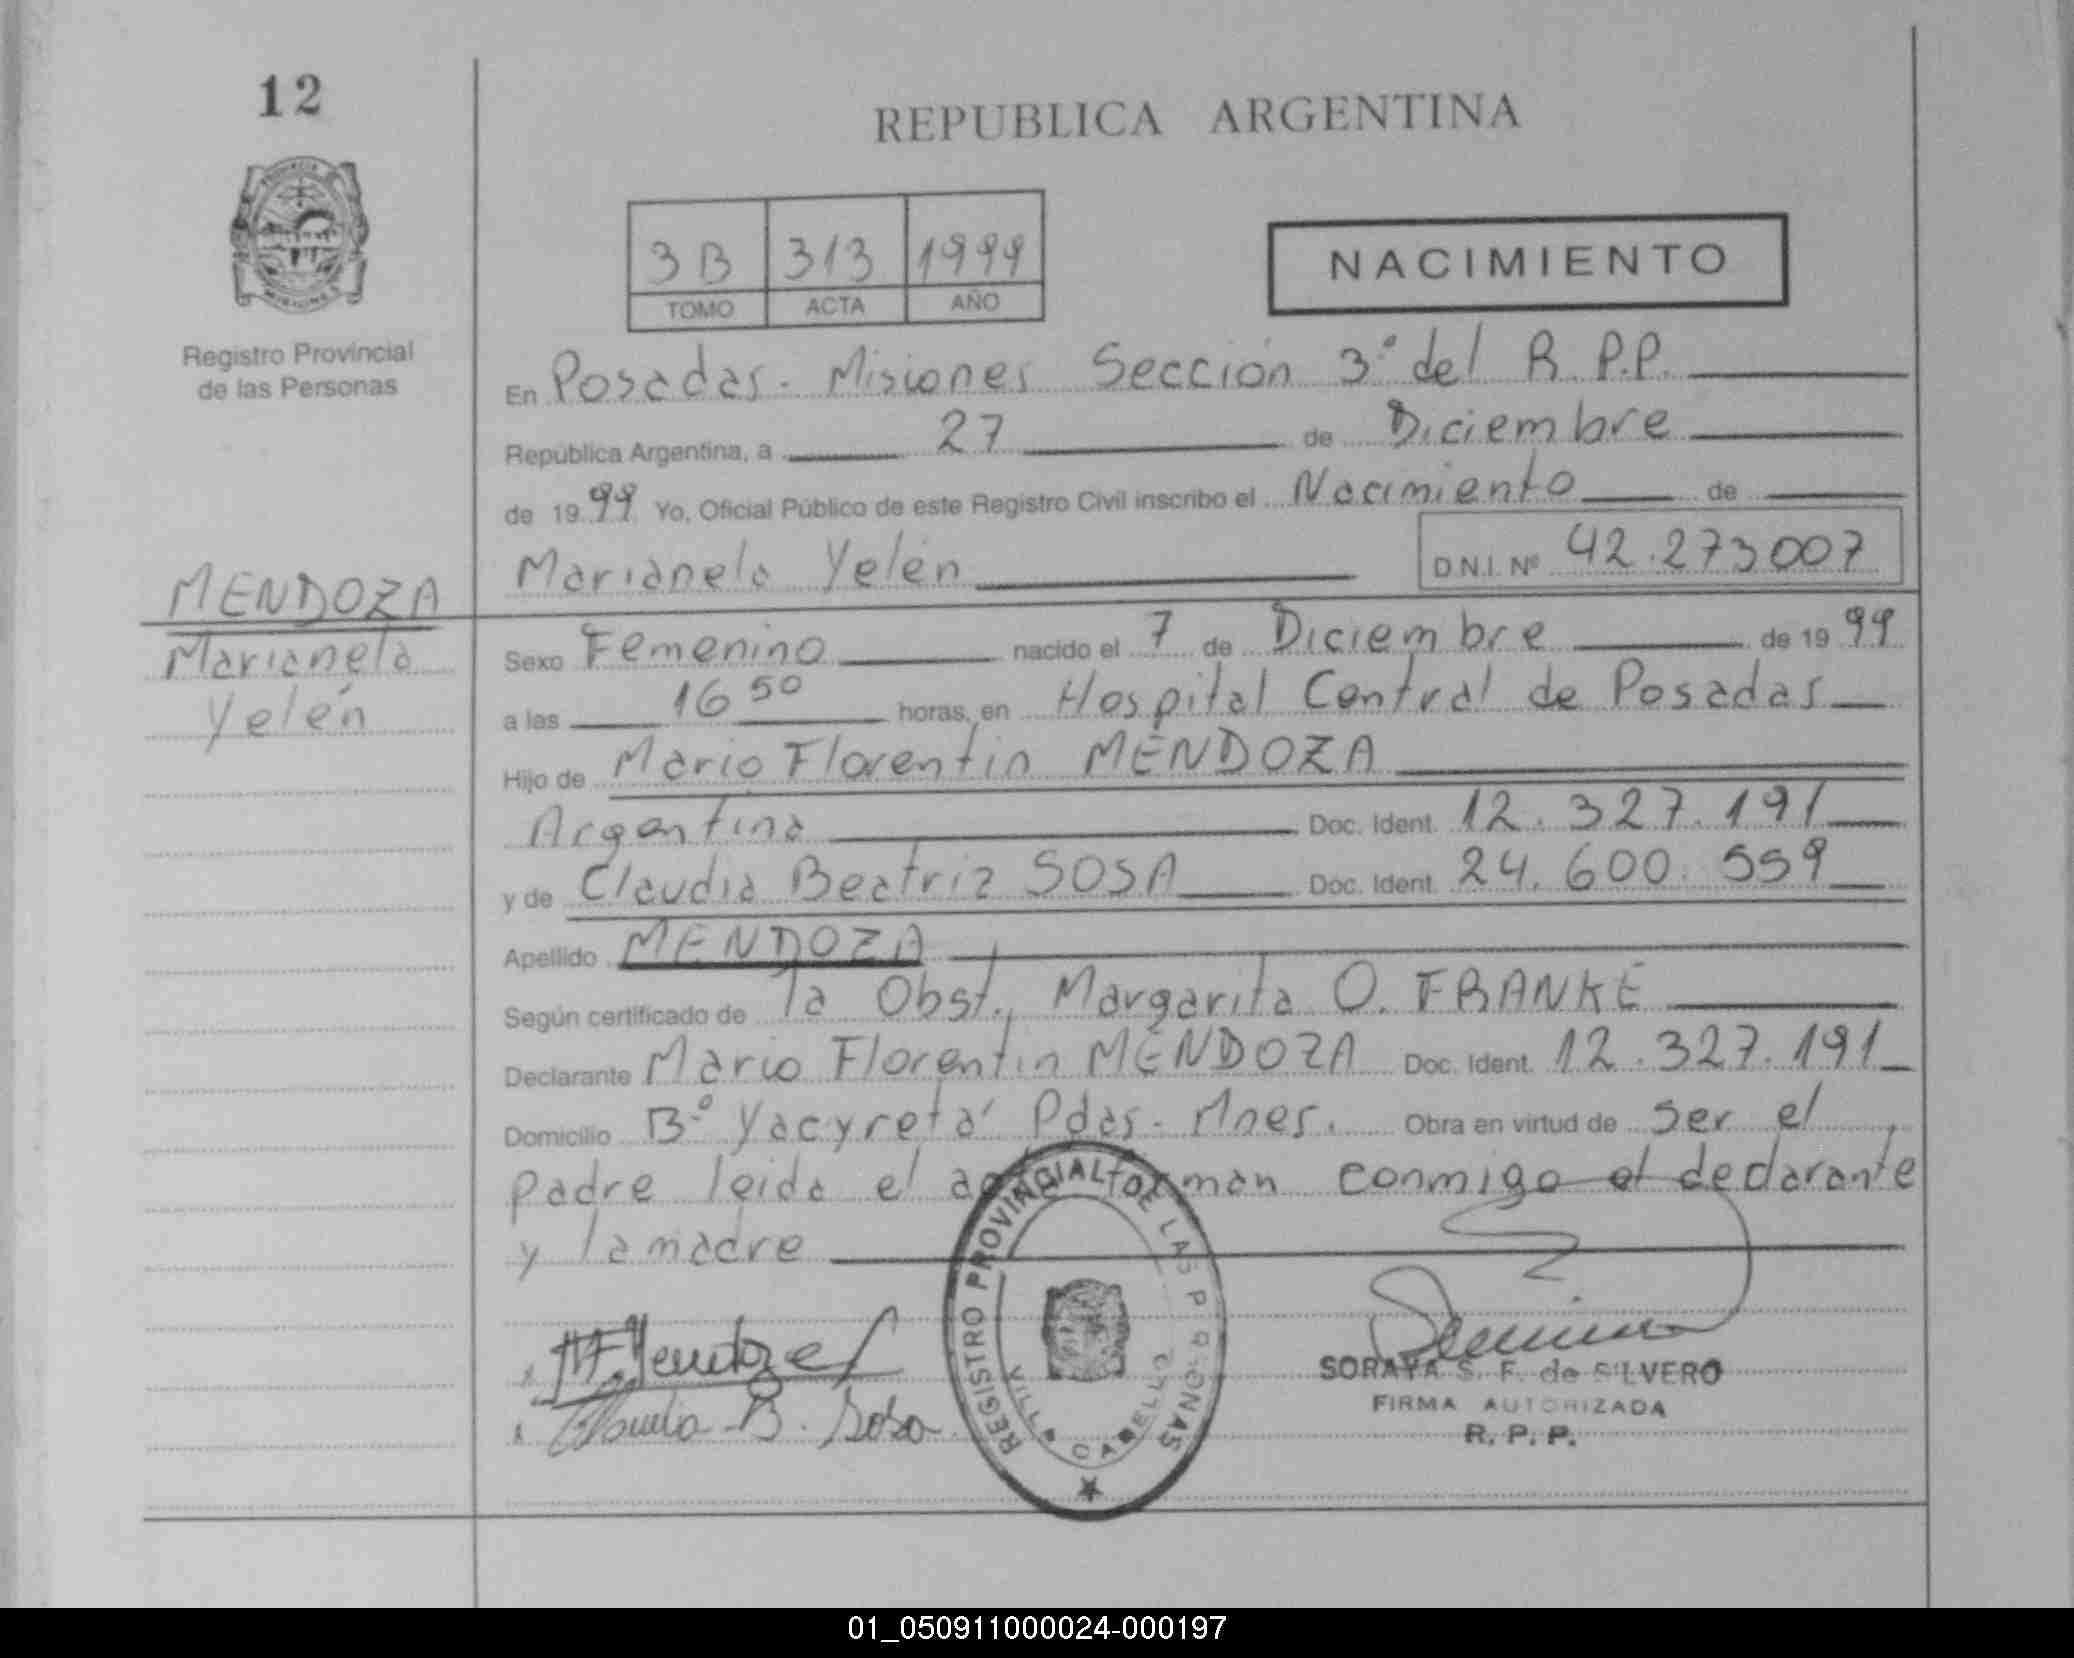 12
REPUBLICA ARGENTINA
PROVINCIA
MISIONES
Registro Provincial
de las Personas
3B 313 1999
TOMO ACTA AÑO
NACIMIENTO
En Posadas - Misiones Sección 3º del R.P.P.
República Argentina, a 27 de Diciembre
de 1999 Yo, Oficial Público de este Registro Civil inscribo el Nacimiento de
Marianela Yelén D.N.I. Nº 42.273007
MENDOZA
Marianela
Yelén
Sexo Femenino nacido el 7 de Diciembre de 1999
a las 16 50 horas, en Hospital Central de Posadas
Hijo de Mario Florentin MENDOZA
Argentina Doc. Ident. 12.327.191
y de Claudia Beatriz SOSA Doc. Ident. 24.600.559
Apellido MENDOZA
Según certificado de la Obst. Margarita O. FRANKE
Declarante Mario Florentin MENDOZA Doc. Ident. 12.327.191
Domicilio Bº Yacyretá Pdas - Mnes. Obra en virtud de ser el
padre leida el acta firman conmigo el declarante
y la madre
M.F. Mendoza
Claudia B. Sosa
REGISTRO PROVINCIAL DE LAS PERSONAS
VILLA CABELLO
SORAYA S. F. de SILVERO
FIRMA AUTORIZADA
R. P. P.
01_050911000024-000197